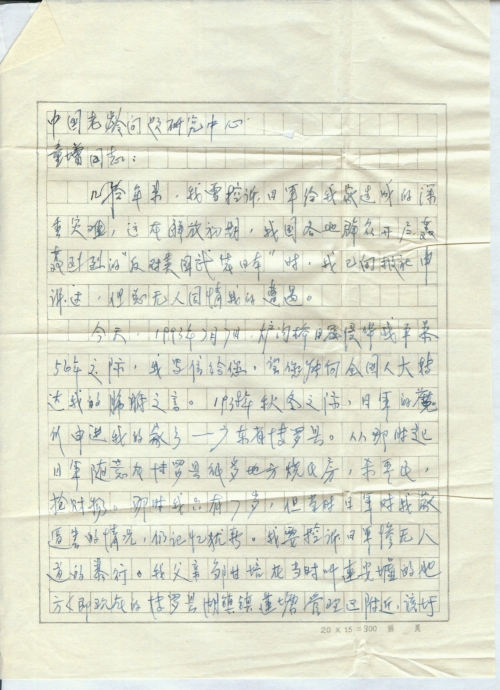 中国老龄问题研究中心
童增同志:
几拾年来,我要控诉日军给我家造成的深
重灾难,这在解放初期,我国各地群众开展轰
轰烈烈的“反对美国武装日本”时,我已向报社申
诉过,但却无人同情我的遭遇。
今天,1993年7月7日,
56年之际,我写信给你,望你能向全国人大转
达我的肺腑之言。1938年秋冬之际,日军的魔
爪申进我的家乡——广东省博罗县。从那时起
日军随意在博罗县很多地方烧民房,杀平民,
抢财物。那时我只有7岁,但当时日军对我家
迫害的情况,仍记忆犹新。我要控诉日军惨无人
道的暴行。我父亲 培在当时叫莲 墟的地
方(即现在的博罗县湖镇镇 管理区附近,该圩
20 × 15 = 300